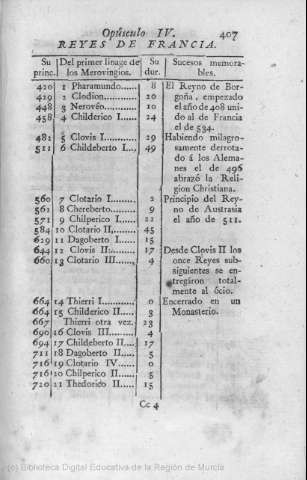 Opúsculo IV. 407
REYES DE FRANCIA.
Su princ. Del primer linage de los Merovingios. Su dur. Sucesos memorables.
420 1 Pharamundo.... 8 El Reyno de Bor-
429 2 Clodion......... 20 goña, empezado
448 3 Nerovéo........ 10 el año de 408 uni-
458 4 Childerico I.... 24 do al de Francia
el de 534.
482 5 Clovis I......... 29 Habiendo milagro-
511 6 Childeberto I... 49 samente derrota-
dó á los Alema-
nes el de 496
abrazó la Reli-
gion Christiana.
560 7 Clotario I....... 2 Principio del Rey-
562 8 Chereberto..... 9 no de Austrasia
571 9 Chilperico I..... 22 el año de 511.
584 10 Clotario II,..... 45
629 11 Dagoberto I.... 15
644 12 Clovis II........ 17 Desde Clovis II los
660 13 Clotario III..... 4 once Reyes sub-
siguientes se en-
tregáron total-
mente al ócio.
664 14 Thierri I........ 0 Encerrado en un
664 15 Childerico II.... 3 Monasterio.
667 Thierri otra vez. 23
690 16 Clovis III....... 4
694 17 Childeberto II.... 17
711 18 Dagoberto II.... 5
716 19 Clotario IV..... 0
716 20 Chilperico II.... 5
720 21 Thedorido II.... 15
Cc 4
(c) Biblioteca Digital Educativa de la Región de Murcia